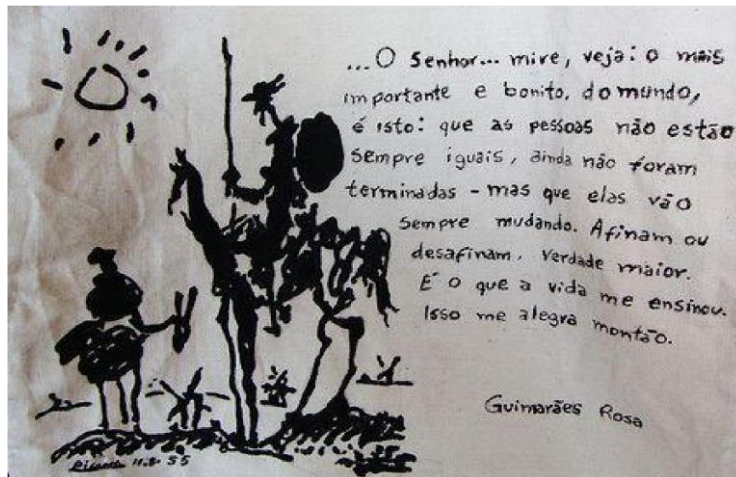 ...O Senhor... mire, veja: o mais
importante e bonito, do mundo,
é isto: que as pessoas não estão
sempre iguais, ainda não foram
terminadas - mas que elas vão
sempre mudando. Afinam ou
desafinam. Verdade maior.
É o que a vida me ensinou.
Isso me alegra montão.
Guimarães Rosa
55